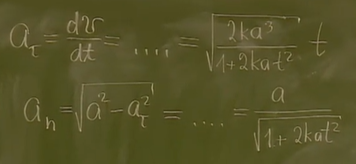 a_τ = dv/dt = .... = √(2ka³)/√(1+2kat²) t
a_n = √(a² − a_τ²) = .... = a/√(1+2kat²)